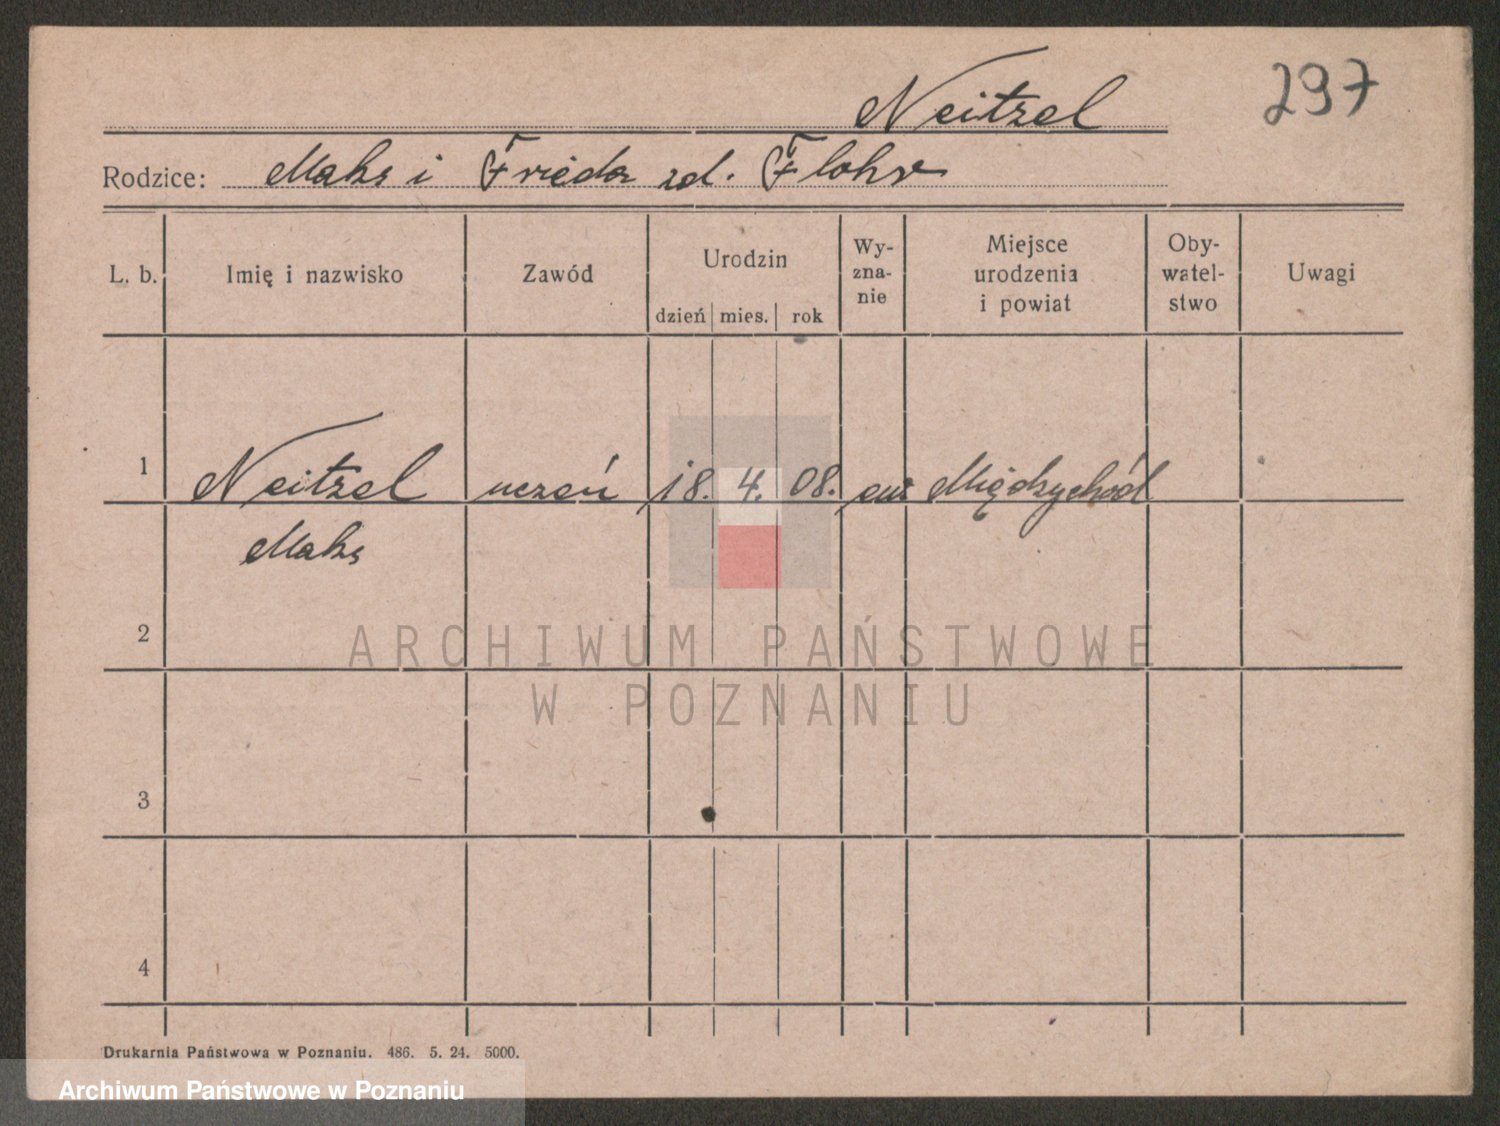 297
Neitzel
Rodzice: Maks i Frieda zd. Flohr
L. b. Imię i nazwisko Zawód Urodzin Wy-zna-nie Miejsce urodzenia i powiat Oby-watel-stwo Uwagi
dzień mies. rok
1 Neitzel uczeń 18. 4. 08. Międzychód
Maks
2
ARCHIWUM PAŃSTWOWE
W POZNANIU
3
4
Drukarnia Państwowa w Poznaniu. 486. 5. 24. 5000.
Archiwum Państwowe w Poznaniu